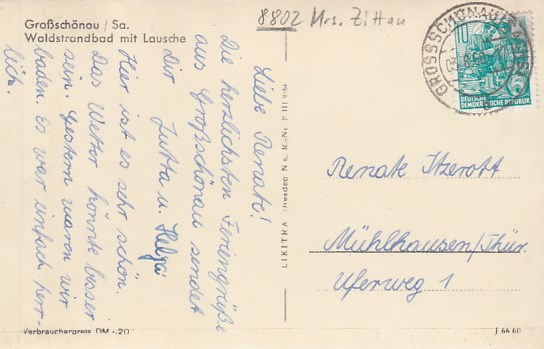 Großschönau / Sa.
Waldstrandbad mit Lausche
8802 Krs. Zittau
Liebe Renate!
Die herzlichsten Feriengrüße
aus Großschönau sendet
dir Jutta u. Helga
Hier ist es sehr schön.
Das Wetter könnte besser
sein. Gestern waren wir
baden. Es war einfach herr-
lich.
Verbraucherpreis DM -.20
LIKITRA Dresden N 6
GROSSSCHÖNAU
10
DEUTSCHE
DEMOKRATISCHE REPUBLIK
Renate Itzerott
Mühlhausen/Thür.
Uferweg 1
J 66 60